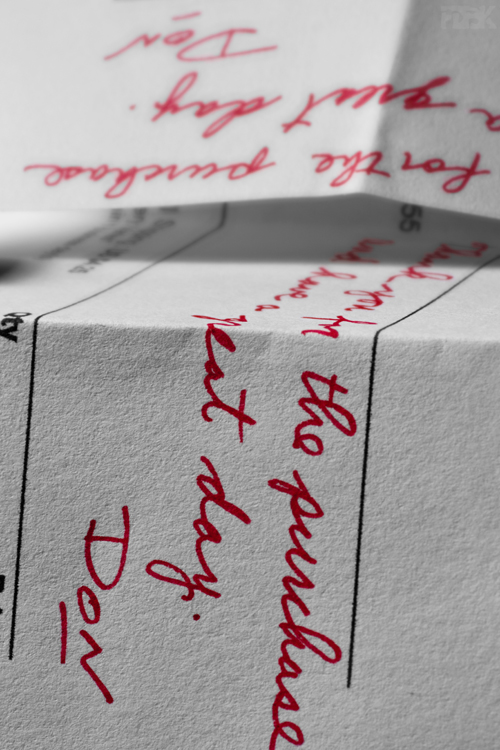 Thank you for the purchase
have a great day.
Don
for the purchase
a great day.
Don
55